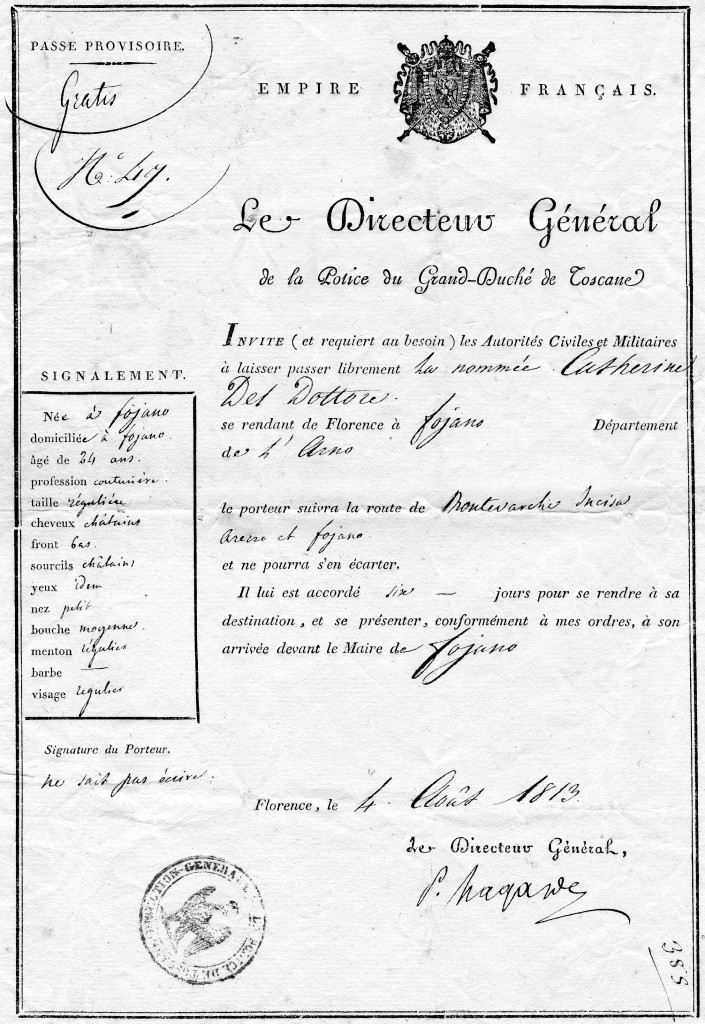 PASSE PROVISOIRE.
Gratis
N.º 49.
EMPIRE FRANÇAIS.
Le Directeur Général
de la Police du Grand-Duché de Toscane
INVITE (et requiert au besoin) les Autorités Civiles et Militaires
à laisser passer librement La nommée Catherine
Del Dottore.
se rendant de Florence à fojano Département
de L'Arno
le porteur suivra la route de Montevarchi Incisa
arezzo et fojano
et ne pourra s'en écarter.
Il lui est accordé six — jours pour se rendre à sa
destination, et se présenter, conformément à mes ordres, à son
arrivée devant le Maire de fojano
SIGNALEMENT.
Née à fojano
domiciliée à fojano.
âgé de 34 ans.
profession couturière.
taille régulière
cheveux châtains
front bas.
sourcils châtains
yeux idem
nez petit
bouche moyenne.
menton régulier
barbe —
visage regulier
Signature du Porteur.
ne sait pas écrire.
Florence, le 4. Août 1813.
Le Directeur Général,
DIRECTION GENERALE DE LA POLICE DE TOSCANE
388